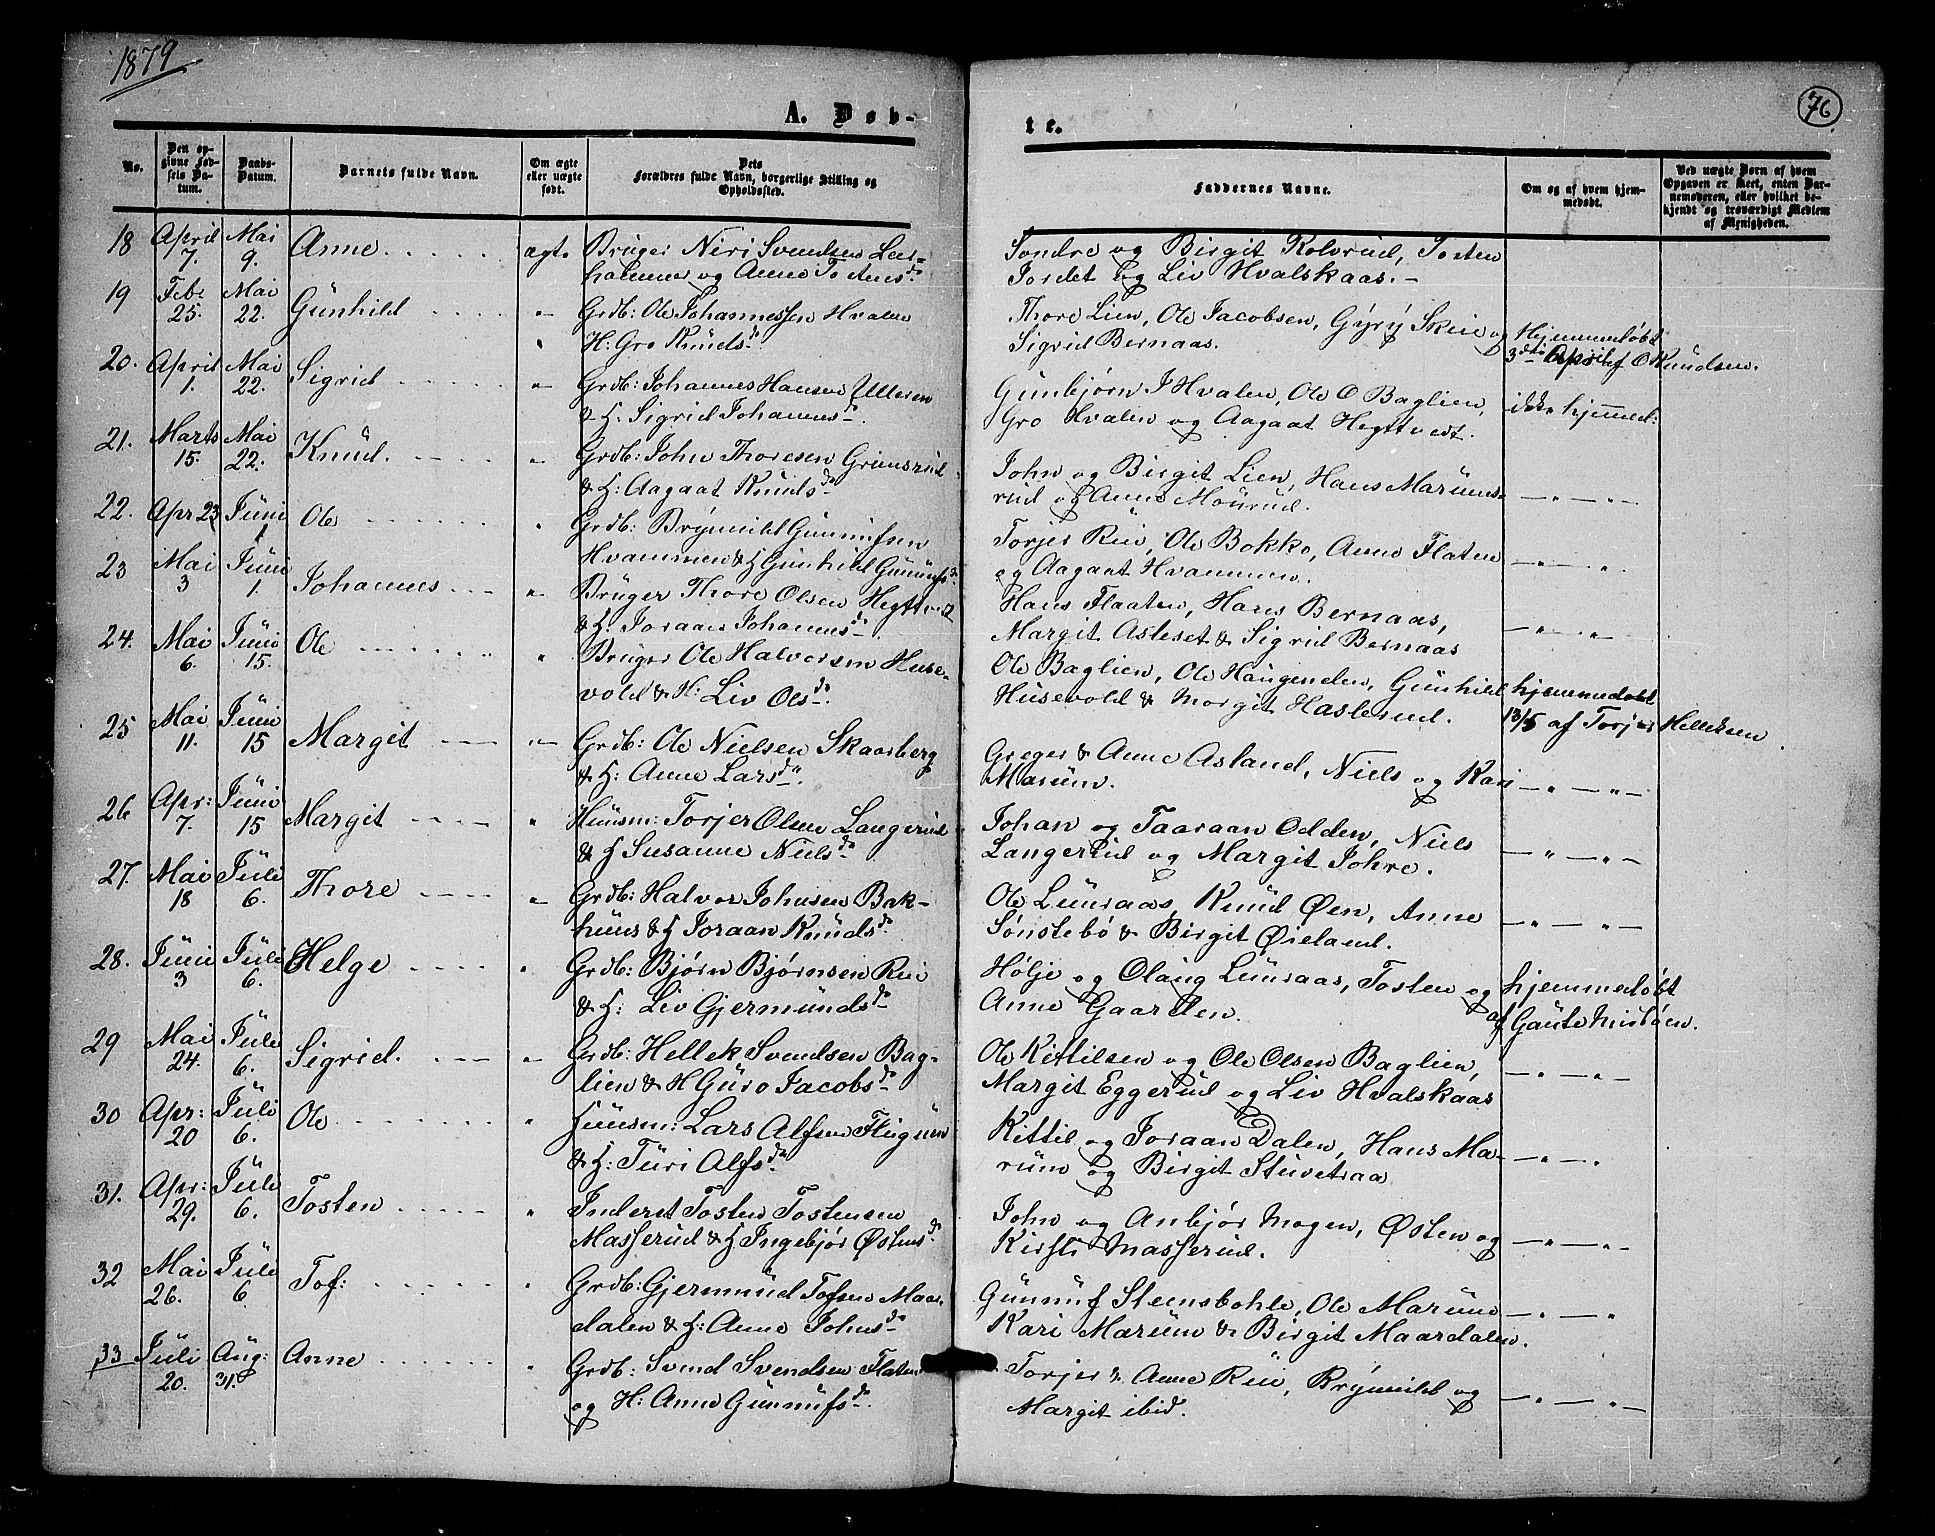 1879
76
A. Døb-
te.
No.
Den op-
givne Fød-
sels Da-
tum.
Daabs-
Datum.
Barnets fulde Navn.
Om ægte
eller uægte
født.
Dets
Forældres fulde Navn, borgerlige Stilling og
Opholdssted.
Faddernes Navne.
Om og af hvem hjem-
medøbt.
Ved uægte Børn af hvem
Opgaven er skeet, enten Bar-
nemoderen, eller hvilket be-
kjendt og troværdigt Medlem
af Menigheden.
18 April Mai Anne ægte Bruger Niri Svendsen
7. 9. og Anne Tostensd. Søndre og Birgit Kolvrud, Tosten
Jordet og Liv Hvalskaas.
19 Feb: Mai Gunhild " Grdb: Ole Johannessen Hvalen
25. 22. H: Gro Knudsd. Thore Lien, Ole Jacobsen, Gyry Skeie og Hjemmedøbt
Sigrid Bernaas. 3die April af O Knudsen.
20. April Mai Sigrid " Grdb: Johannes Hansen Ulleren
1. 22. & H. Sigrid Johannesd. Gunbjørn J Hvalen, Ole O Baglien, ikke hjemmed:
Gro Hvalen og Aagaat Hegttvedt.
21. Marts Mai Knud. " Grdb: John Thoresen Grimsrud
15. 22. & H: Aagaat Knudsd. John og Birgit Lien, Hans Marums-
rud og Anne Mourud. — " — " —
22. Apr 23 Juni Ole " Grdb: Brynnild Gunnufsen
1 Hvammen & H Gunhild Gunnufsd. Torjer Rui, Ole Bokko, Anne Flaten
og Aagaat Hvammen. — " — " —
23 Mai Juni Johannes " Bruger Thore Olsen Hegttvedt
3 1. & H. Joraan Johannesd. Hans Flaaten, Hans Bernaas,
Margit Asleset & Sigrid Bernaas — " — " —
24. Mai Juni Ole " Bruger Ole Halvorsen Huse-
6. 15. vold & H: Liv Olsd. Ole Baglien, Ole Haugenden, Gunhild hjemmedøbt
Husevold & Margit Haslerud. 13/5 af Torjus Helleksen
25 Mai Juni Margit " Grdb: Ole Nielsen Skaarberg
11. 15 & H: Anne Larsd. Greger & Anne Asland, Niels og Kari
Marum. — " — " —
26 Apr: Juni Margit " Huusm: Torjer Olsen Langerud
7. 15 & H Susanne Nielsd. Johan og Taaraan Odden, Niels
Langerud og Margit Johre. — " — " —
27. Mai Juli Thore " Grdb: Halvor Johnsen Bak-
18 6. huus & H Joraan Knudsd. Ole Lunraas, Knud Øen, Anne
Sønstebø & Birgit Øieland. — " — " —
28. Juni Juli Helge " Grdb: Bjørn Bjørnsen Rui
3 6. & H: Liv Gjermundsd. Hølje og Olaug Lunraas, Tosten og hjemmedøbt
Anne Gaarden. af Gaute Misbøen.
29 Mai Juli Sigrid. " Grdb: Hellek Svendsen Bag-
24. 6. lien & H Guro Jacobsd. Ole Kittilsen og Ole Olsen Baglien,
Margit Eggerud og Liv Hvalskaas — " — " —
30 Apr: Juli Ole " Huusm: Lars Alfsen Flugum
20 6. & H: Turi Alfsd. Kittil og Joraan Dalen, Hans Ma-
rum og Birgit Stuvetraa — " — "
31. Apr: Juli Tosten " Inderst Tosten Tostensen
29. 6. Masserud & H Ingebjør Østensd. John og Anbjør Mogen, Østen og
Kirsti Masserud. — " — " —
32 Mai Juli Tof: Grdb: Gjermund Tofsen Maar-
26. 6. dalen & H: Anne Johnsd. Gunnuf Steensbohle, Ole Marum
Kari Marum & Birgit Maardalen. — " — "
33 Juli Aug: Anne " Grdb: Svend Svendsen Flaten
20. 31. og H: Anne Gunnufsd. Torjer & Anne Rui, Brynnild og
Margit ibid. — " — " —